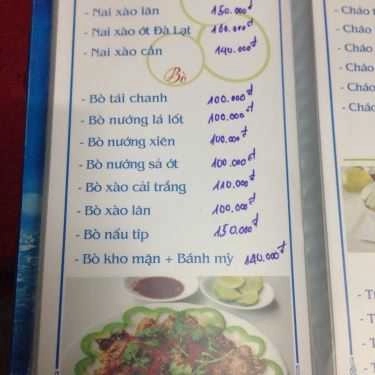 - Nai xào lăn 150.000đ
- Nai xào ớt Đà Lạt 160.000đ
- Nai xào cần 140.000đ
Bò
- Bò tái chanh 100.000đ
- Bò nướng lá lốt 100.000đ
- Bò nướng xiên 100.000đ
- Bò nướng sả ớt 100.000đ
- Bò xào cải trắng 110.000đ
- Bò xào lăn 100.000đ
- Bò nấu típ 150.000đ
- Bò kho mặn + Bánh mỳ 140.000đ
- Cháo
- Cháo
- Cháo
- Cháo
- Cháo